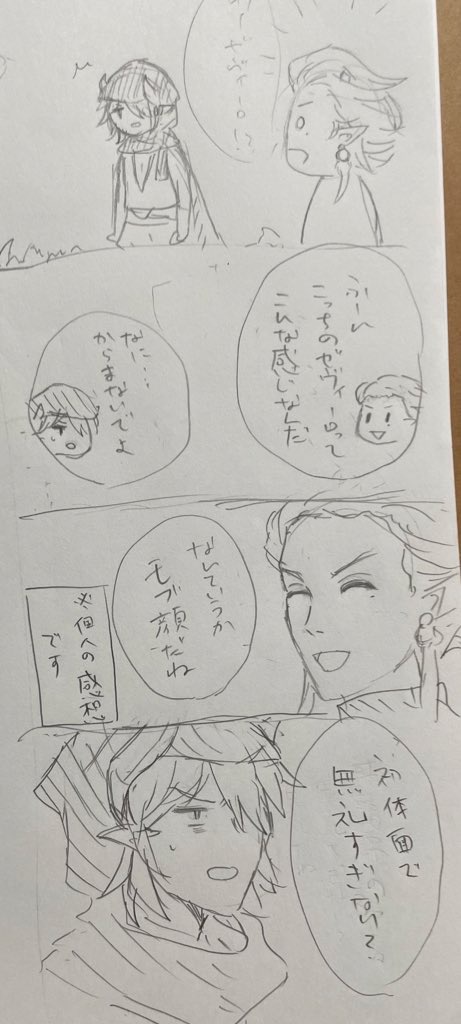 ふーん
こっちのゼヴィーロって
こんな感じなんだ
なに…
からまないでよ
なんていうか
モブ顔だね
※個人の感想
です
初体面で
無礼すぎない?